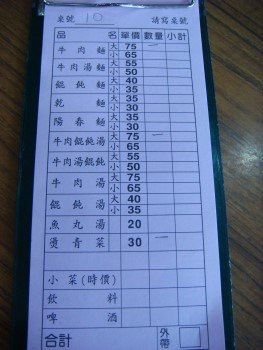 桌號 10 請寫桌號
品 名 單價 數量 小計
牛肉麵 大 75 一
小 65
牛肉湯麵 大 55
小 50
餛飩麵 大 40
小 35
乾麵 大 35
小 30
陽春麵 大 35
小 30
牛肉餛飩湯 大 75 一
小 65
牛肉湯餛飩 大 55
小 50
牛肉湯 大 75
小 65
餛飩湯 大 40
小 35
魚丸湯 20
燙青菜 30 一
小菜(時價)
飲料
啤酒
合計 外帶